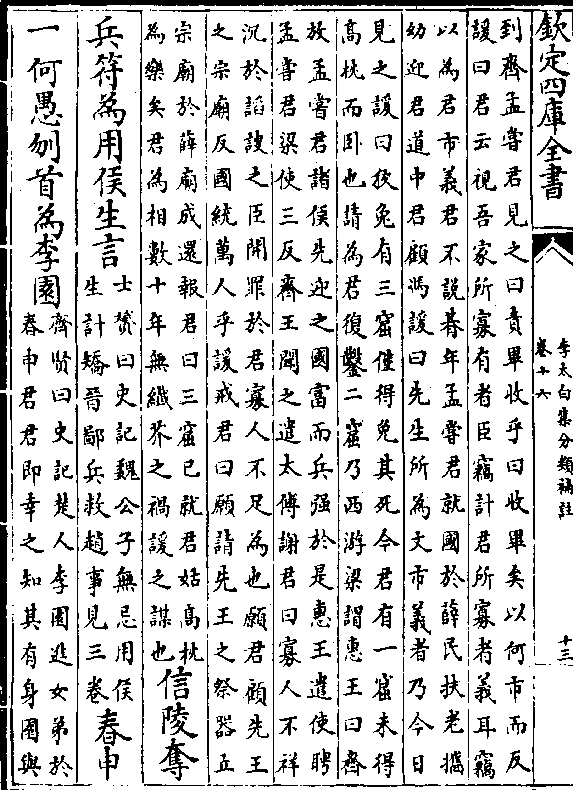 欽定四庫全書
李太白集分類補註
卷十六
十三
到齊孟嘗君見之曰責畢收乎曰收畢矣以何市而反
諼曰君云視吾家所寡有者臣竊計君所寡者義耳竊
以為君市義君不說朞年孟嘗君就國於薛民扶老攜
幼迎君道中君顧馮諼曰先生所為文市義者乃今日
見之諼曰狡兔有三窟僅得免其死今君有一窟未得
高枕而卧也請為君復鑿二窟乃西游梁謂惠王曰齊
放孟嘗君諸侯先迎之國富而兵强於是惠王遣使聘
孟嘗君梁使三反齊王聞之遣太傅謝君曰寡人不祥
沉於謟諛之臣開罪於君寡人不足為也願君顧先王
之宗廟反國統萬人乎諼戒君曰願請先王之祭器立
宗廟於薛廟成還報君曰三窟已就君姑高枕
為樂矣君為相數十年無纎芥之禍諼之謀也
信陵奪
兵符為用侯生言
士贇曰史記魏公子無忌用侯
生計矯晉鄙兵救趙事見三卷
春申
一何愚刎首為李園
齊賢曰史記楚人李園進女弟於
春申君君即幸之知其有身園與